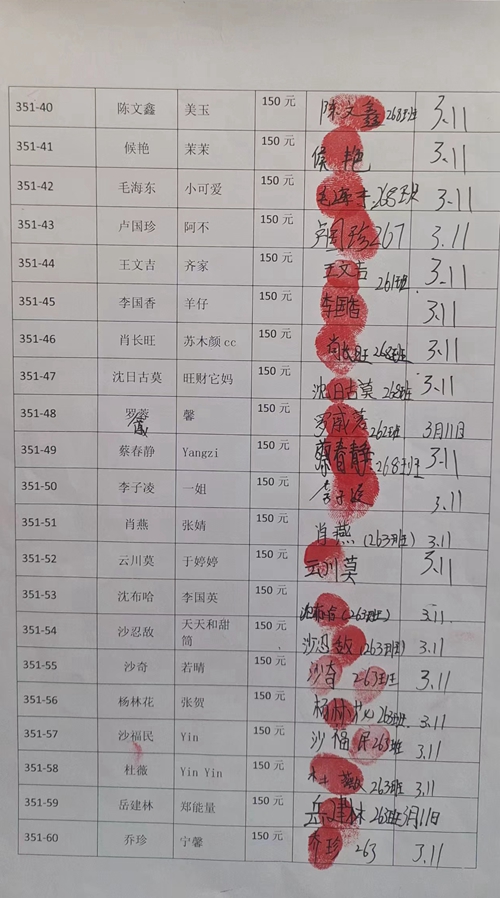 351-40 陈文鑫 美玉 150 元 陈文鑫 268班 3.11
351-41 候艳 茉茉 150 元 侯艳 3.11
351-42 毛海东 小可爱 150 元 268班 3.11
351-43 卢国珍 阿不 150 元 卢国珍267 3.11
351-44 王文吉 齐家 150 元 王文吉 261班 3.11
351-45 李国香 羊仔 150 元 李国香 3.11
351-46 肖长旺 苏木颜 cc 150 元 肖长旺 268班 3.11
351-47 沈日古莫 旺财它妈 150 元 沈日古莫 268班 3.11
351-48 罗蓉 馨 150 元 262班 3月11日
351-49 蔡春静 Yangzi 150 元 蔡春静 268班 3.11
351-50 李子凌 一姐 150 元 3.11
351-51 肖燕 张婧 150 元 肖燕 (263班) 3.11
351-52 云川莫 于婷婷 150 元 云川莫 3.11
351-53 沈布哈 李国英 150 元 沈布哈 (263班) 3.11
351-54 沙忍敌 天天和甜筒 150 元 沙忍敌 (263班) 3.11
351-55 沙奇 若晴 150 元 沙奇 263班 3.11
351-56 杨林花 张贺 150 元 杨林花 263班 3.11
351-57 沙福民 Yin 150 元 沙福民 263班 3.11
351-58 杜薇 Yin Yin 150 元 杜薇 263班 3.11
351-59 岳建林 郑能量 150 元 岳建林 263班 3月11日
351-60 乔珍 宁馨 150 元 乔珍 263 3.11